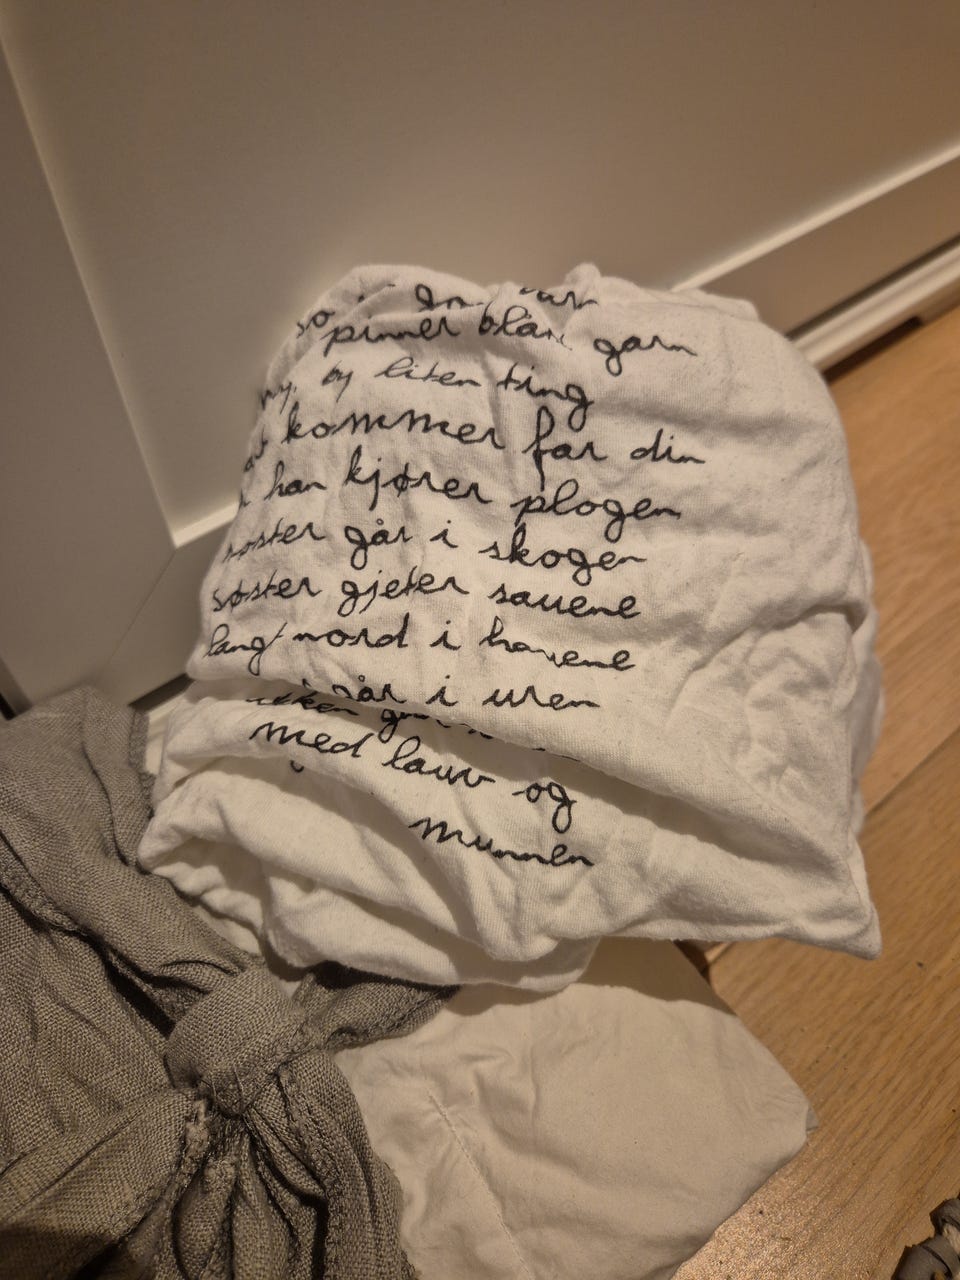 so
pinner blått garn
by liten ting
kommer far din
han kjører plogen
søster går i skogen
søster gjeter sauene
langt nord i havene
går i uren
med lauv og
munnen